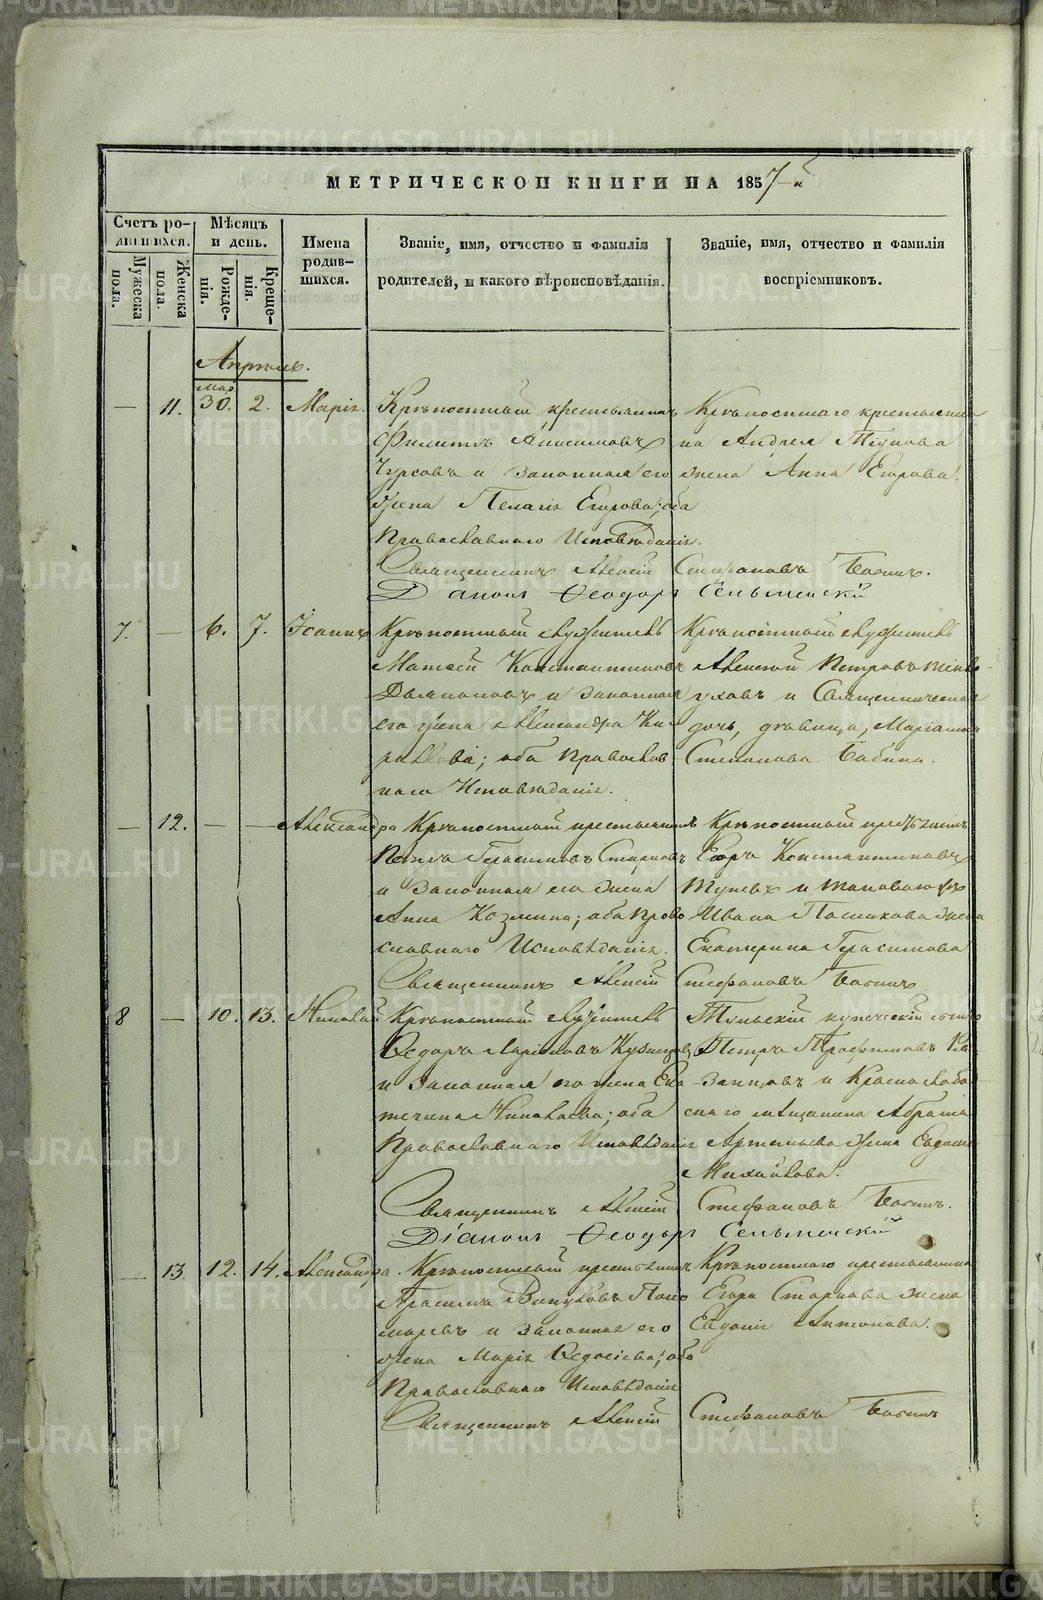 МЕТРИЧЕСКОЙ КНИГИ НА 1857-й
Счетъ родившихся.
Мѣсяцъ и день.
Имена родившихся.
Званіе, имя, отчество и фамилія родителей, и какого вѣроисповѣданія.
Званіе, имя, отчество и фамилія воспріемниковъ.
Мужеска пола.
Женска пола.
Рожденія.
Крещенія.
Апрѣль.
мар
— 11. 30. 2. Марія.
Крѣпостный крестьянинъ
Филиппъ Анисимовъ
Чурсовъ и законная его
жена Пелагія Егорова; оба
Православнаго Исповѣданія.
Крѣпостнаго крестьяни
на Андрея
жена Анна Егорова.
Священникъ Алексій Стефановъ Бабинъ.
Діаконъ Ѳеодоръ
7. — 6. 7. Іоаннъ
Крѣпостный служитель
Матвей Константиновъ
и законная
его жена Александра Ки
риллова; оба Православ
наго Исповѣданія.
Крѣпостный служитель
Алексѣй Петровъ
и Священническая
дочь, дѣвица, Маріамна
Степанова Бабина.
— 12. — — Александра
Крѣпостный крестьянинъ
Петръ Герасимовъ Старковъ
и законная его жена
Анна Козмина; оба Право
славнаго Исповѣданія.
Крѣпостный крестьянинъ
Егоръ Константиновъ
и таковаго жъ
Ивана жена
Екатерина Герасимова
Священникъ Алексій Стефановъ Бабинъ
8 — 10. 13. Николай
Крѣпостный служитель
Ѳедоръ Кузнецовъ
и законная его жена Ека
терина Николаева; оба
Православнаго Исповѣданія
Тульскій купеческій сынъ
Петръ Трофимовъ Ка
занцовъ и Краснослобо
скаго мѣщанина Абрама
Артемьева жена Евдокія
Михайлова.
Священникъ Алексій Стефановъ Бабинъ.
Діаконъ Ѳеодоръ
— 13. 12. 14. Александра.
Крѣпостный крестьянинъ
Герасимъ Поно
маревъ и законная его
жена Марія Ѳедосіева; оба
Православнаго Исповѣданія
Крѣпостнаго крестьянина
Егора Старкова жена
Евдокія Антонова.
Священникъ Алексій Стефановъ Бабинъ
METRIKI.GASO-URAL.RU